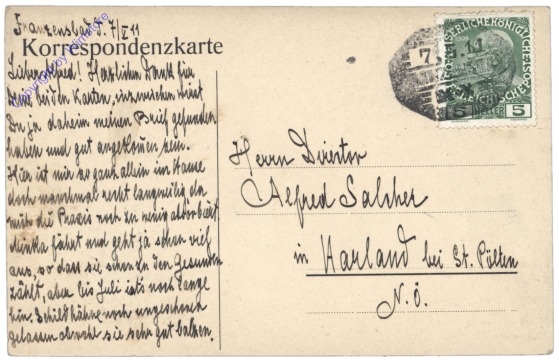 Franzensbad d. 7/V 11
Korrespondenzkarte
Lieber Alfred! Herzlichen Dank für
Deine beiden Karten, inzwischen wirst
Du ja daheim meinen Brief gefunden
haben und gut angekommen sein.
Hier ist mir so ganz allein im Hause
doch manchmal recht langweilig da
mich die Praxis noch zu wenig
fährt und geht ja schon viel
aus, so dass sie schon zu den Gesunden
zählt, aber bis Juli ists noch lange
hin. Schildhähne noch
obwohl sie sehr gut balzen.
Herrn Director
Alfred Salcher
in Harland bei St. Pölten
N. Ö.
KAISERLICHE KÖNIGLICHE
5